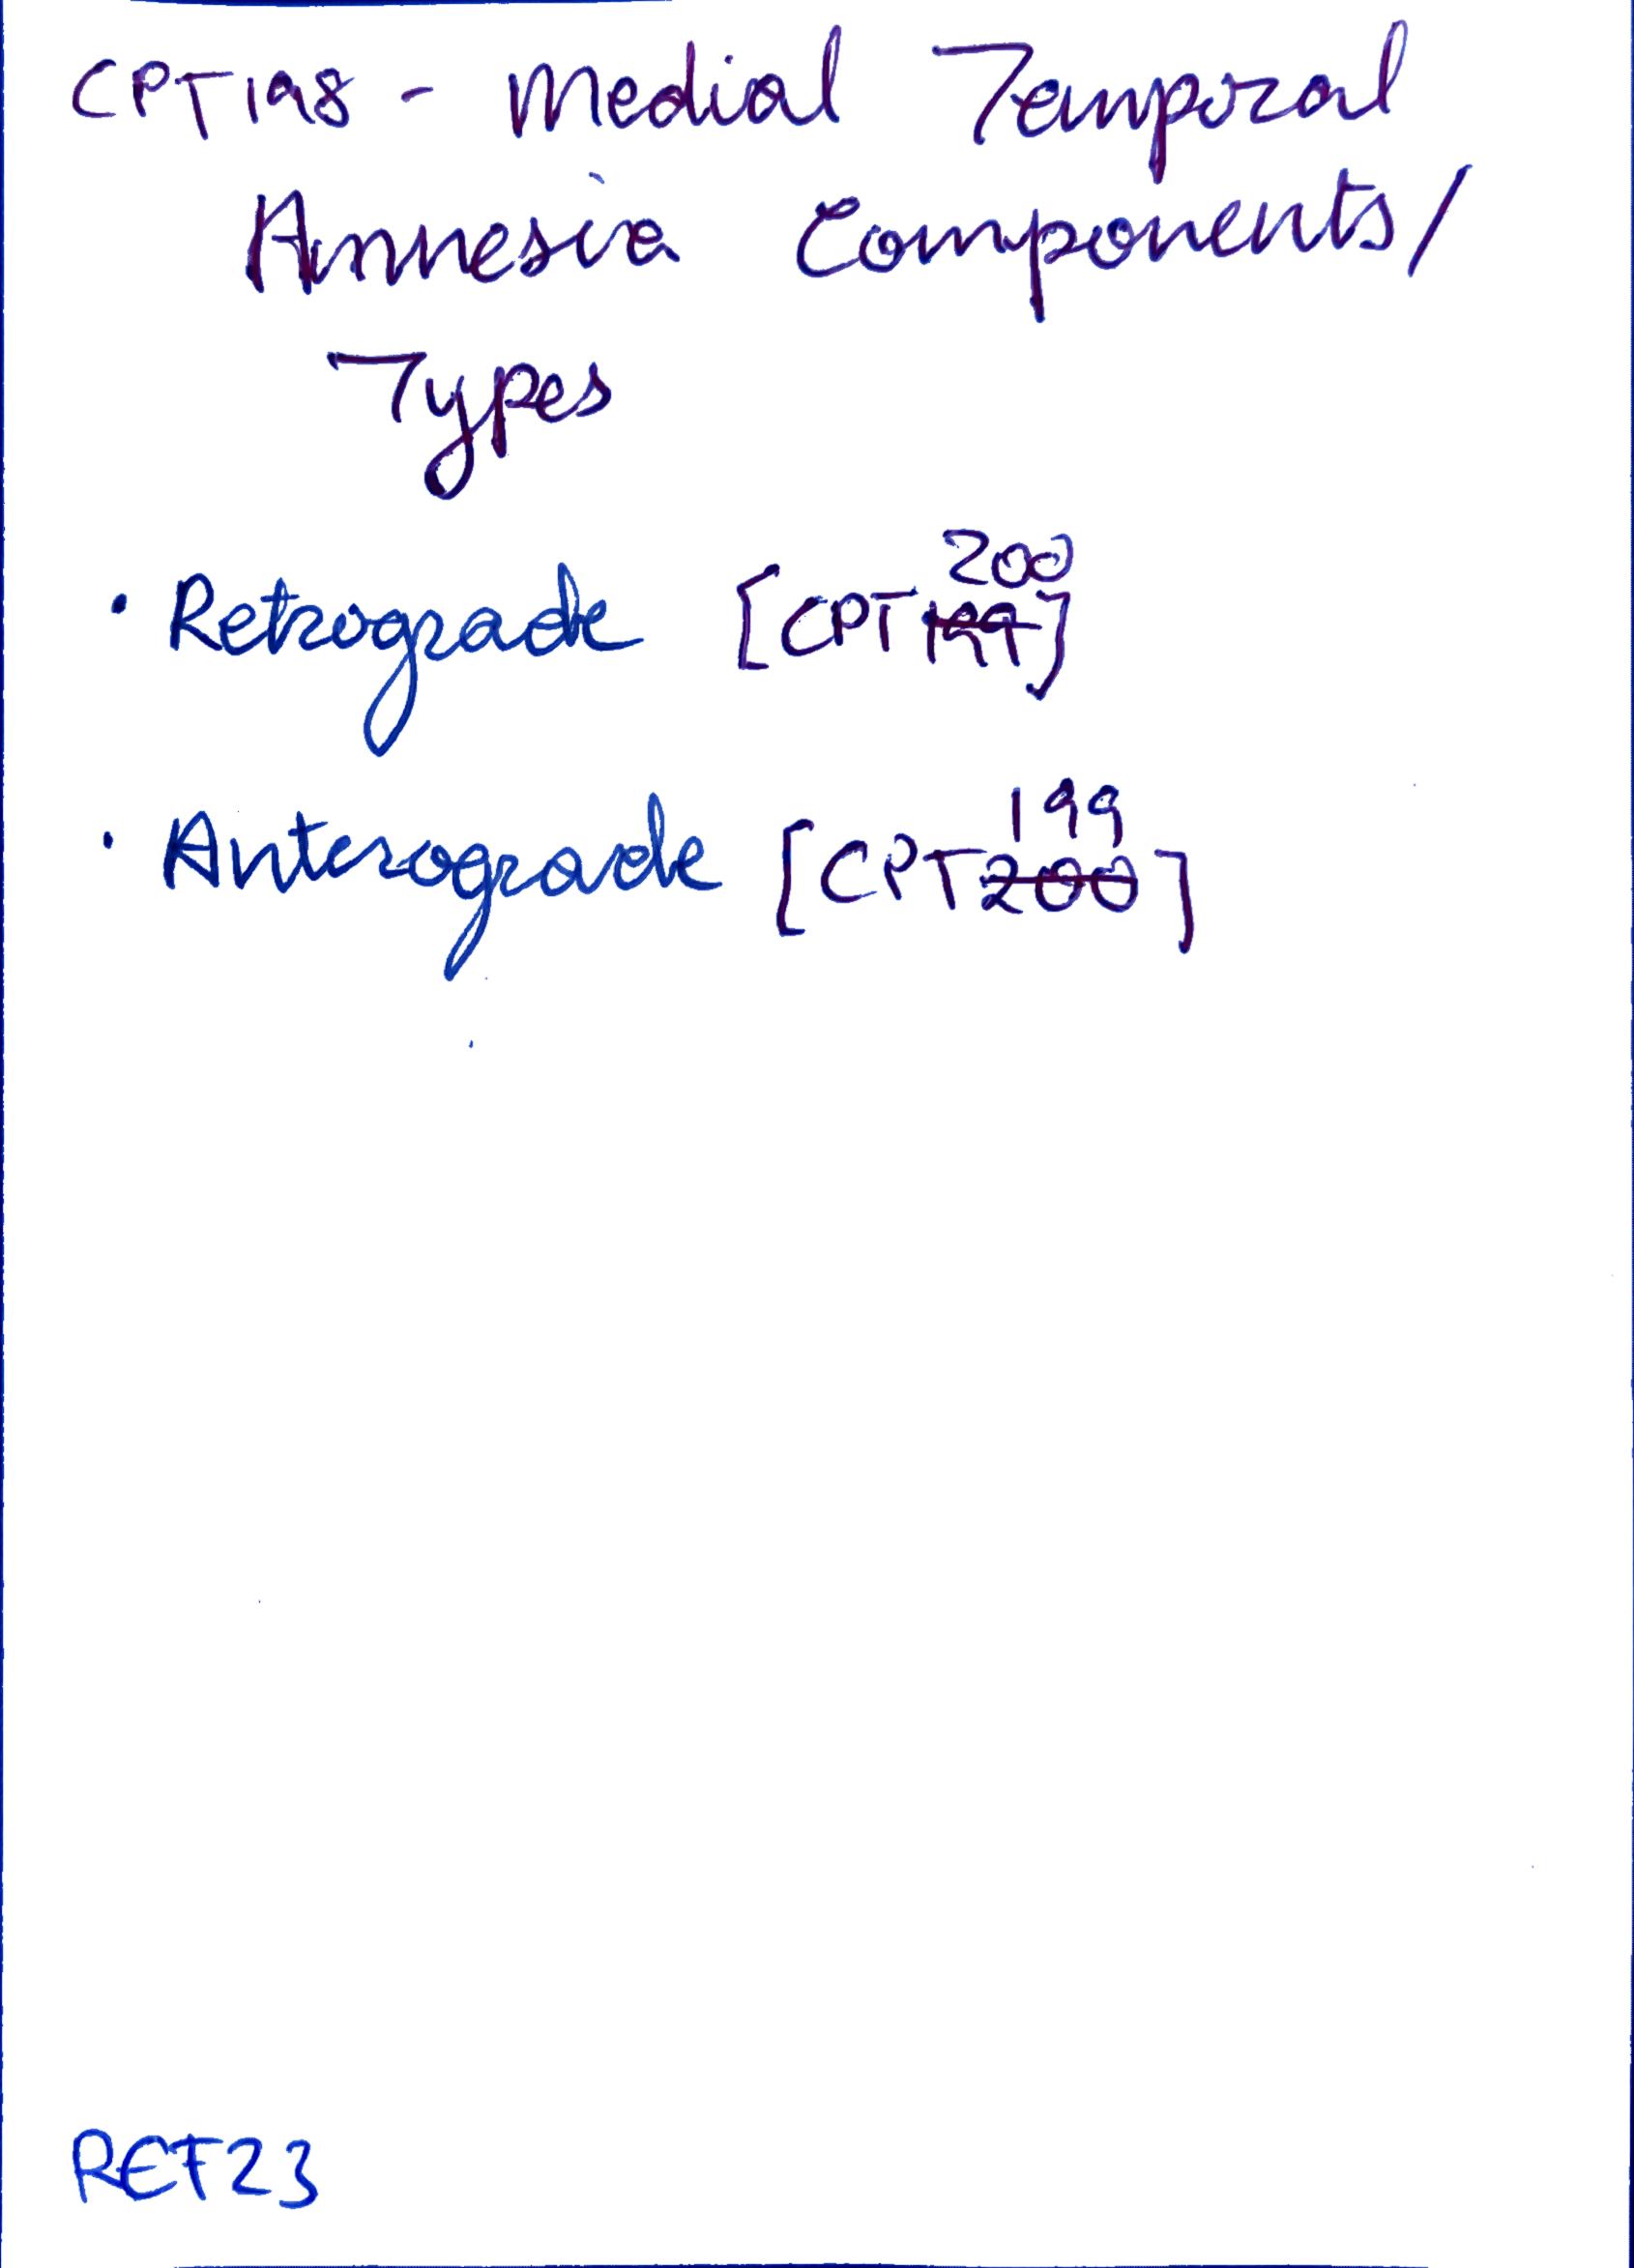 CPT198 - Medial Temporal
Amnesia Components/
Types
200
• Retrograde [CPT199]
199
• Anterograde [CPT200]
REF23